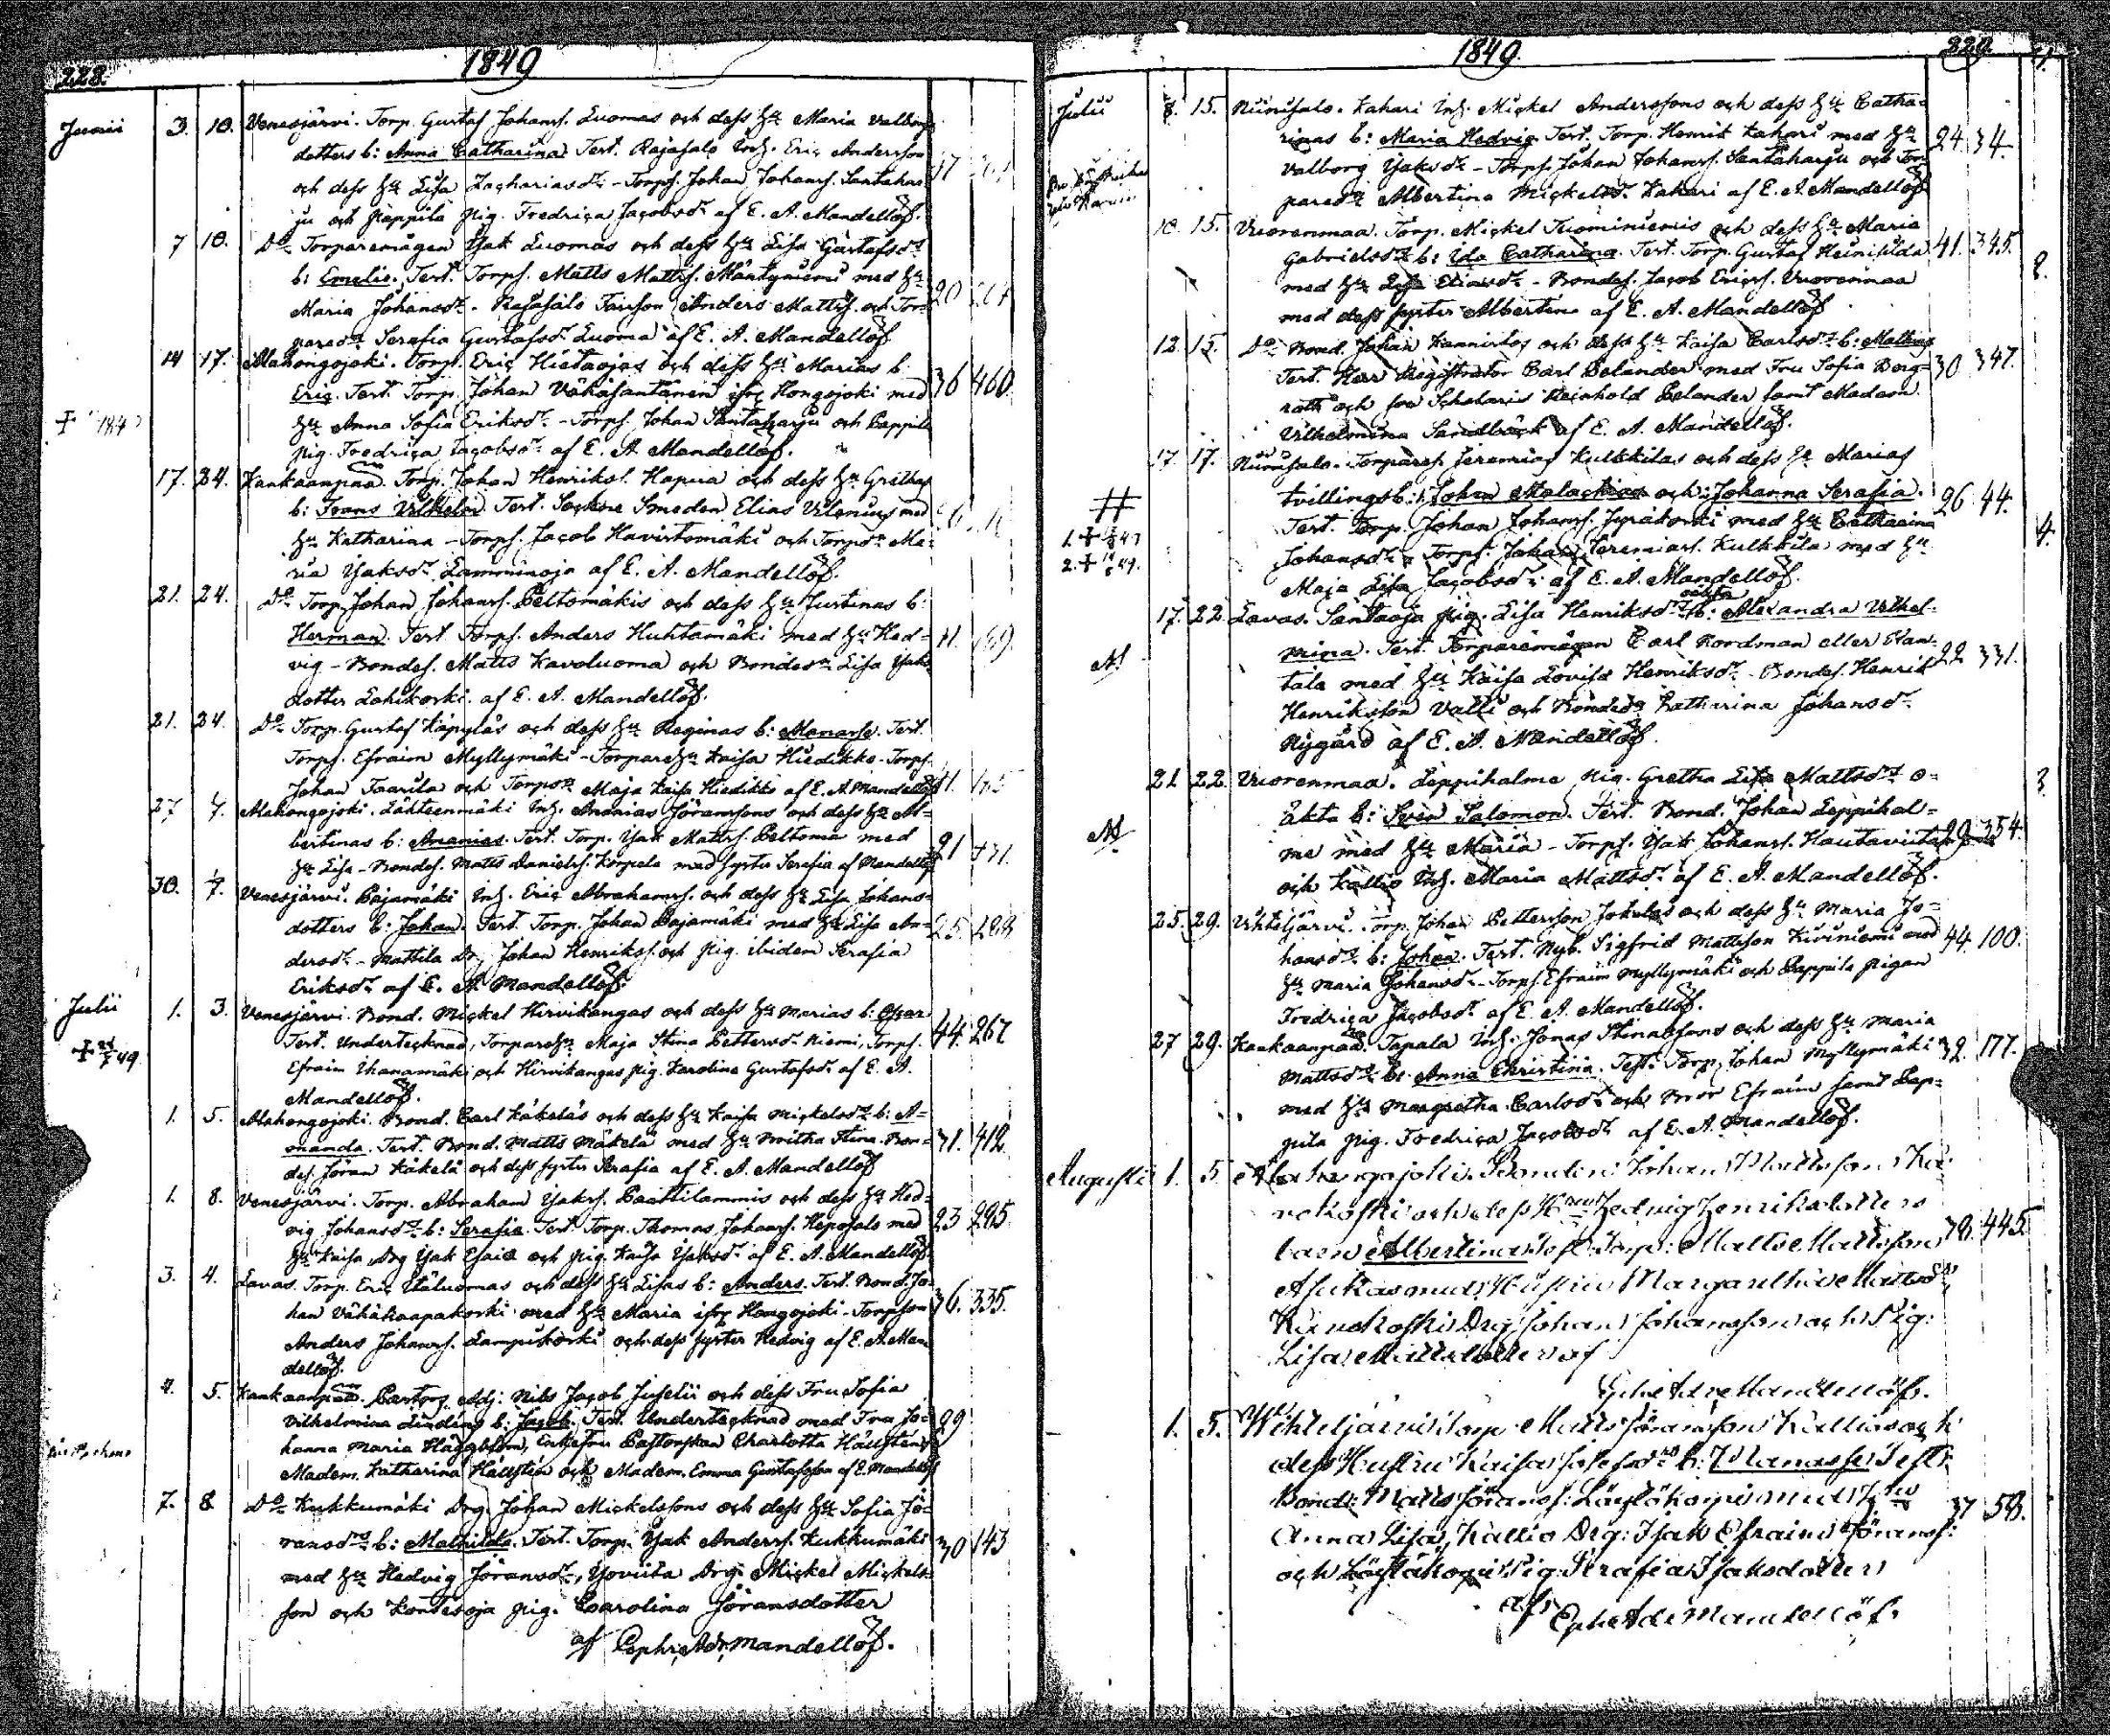 228.
1849
Junii 3. 10. Venesjärvi. Torp. Gustaf Johanss. Luomas och dess Hu Maria Valborgs
dotters b: Anna Catharina. Test. Rajasalo Inh. Eric Andersson
och dess Hu Lisa Zachariasdr - Torps. Johan Johanss. Santahar
ju och Pappila pig. Fredrica Jacobsdr af E. A. Mandellöf.
7 10. Do Torparemågen Isak Luomas och dess Hu Lisa Gustafsdr
b: Emelie. Test. Torps. Matts Mattss. Mäntyniemi med Hu
Maria Johansdr - Rajasalo Anders Mattss. och Tor-
paredr Serafia Gustafsdr Luoma af E. A. Mandellöf
14 17. Alahongojoki. Torp. Eric Hietaojas och dess Hu Marias b:
Eric. Test. Torp. Johan Vähäsantanen ifr. Hongojoki med 36 460.
Hu Anna Sofia Eriksdr - Torps. Johan Santaharju och Pappila
pig. Fredrica Jacobsdr af E. A. Mandellöf.
17. 24. Kankaanpää. Torp. Johan Henrikss. Hapua och dess Hu Grethas
b: Frans Vilhelm Test. Sockne Smeden Elias Vilenius med
Hu Katharina - Torps. Jacob Havirtomäki och Torpdr Ma-
ria Isaksdr Lamminoja af E. A. Mandellöf.
21. 24. Do Torp. Johan Johanss. Peltomäkis och dess Hu Justinas b:
Herman. Test Torps. Anders Huhtamäki med Hu Hed-
vig - Bondes. Matts Kavoluoma och Bondedr Lisa Isaks
dotter Lahikorki. af E. A. Mandellöf.
21. 24. Do Torp. Gustaf Käpyläs och dess Hu Reginas b: Manasse. Test.
Torps. Efraim Myllymäki - Torpare Hu Kaisa Hiedikko - Torps.
Johan Taarila och Torpdr Maja Kaisa Hiedikko af E. A. Mandellöf
27 4. Alahongojoki. Lähteenmäki Inh. Ananias Göranssons och dess Hu Al-
bertinas b: Ananias. Test. Torp. Isak Mattss. Peltoma med
Hu Lisa - Bondes. Matts Daniels. Korpela med syster Serafia af Mandellöf
30. 7. Venesjärvi. Pajamäki Inh. Eric Abrahamss. och dess Hu Lisa Johans-
dotters b: Johan. Test. Torp. Johan Pajamäki med Hu Lisa An-
dersdr - Mattila Dr. Johan Henrikss. och pig. ibidem Serafia
Eriksdr af E. A. Mandellöf.
Julii 1. 3. Venesjärvi. Bond. Mickel Hirvikangas och dess Hu Marias b: Oscar
Test. Undertecknad, Torpare Hu Maja Stina Pettersdr Niemi, Torps. 44. 267
Efraim Ihanamäki och Hirvikangas pig. Karolina Gustafsdr af E. A.
Mandellöf.
1. 5. Alahongojoki. Bond. Carl Käkeläs och dess Hu Kaisa Mickelsdr b: A-
manda. Test. Bond. Matts Mäkelä med Hu Britha Stina - Bon- 31. 412
des. Jöran Käkelä och dess syster Serafia af E. A. Mandellöf
1. 8. Venesjärvi. Torp. Abraham Isakss. Paattilammis och dess Hu Hed-
vig Johansdr b: Serafia. Test Torp. Thomas Johanss. Heposalo med 23 295
Hu Kaisa, Drg Isak Esaia och pig. Kaisa Isaksdr af E. A. Mandellöf.
3. 4. Lavas. Torp. Eric Yliluomas och dess Hu Lisas b: Anders. Test. Bond. Jo-
han Vähähaapakorki med Hu Maria ifr. Hongojoki - Torpson 36. 335.
Anders Johanss. Lampikorki och dess syster Hedvig af E. A. Man
dellöf.
4. 5. Kankaanpää. Pastors Adj. Nils Jacob Juselii och dess Fru Sofia
Vilhelmina Lindéns b: Jacob. Test. Undertecknad med Fru Jo- 29
hanna Maria Häggblom, Enkefru Pastorskan Charlotta Hällstén,
Madem. Katharina Hällstén och Madem. Emma Gustafsson af E. Mandellöf
7. 8 Do Kukkumäki Drg. Johan Mickelssons och dess Hu Sofia Jö-
ransdrs b: Mathilda. Test. Torp. Isak Anderss. Kukkumäki 30 143
med Hu Hedvig Göransdr, Drg Mickel Mickels-
son och Kontesoja pig. Carolina Göransdotter
af Ephr. Adr. Mandellöf.
1849. 229.
Julii 8. 15. Niinisalo. Kahari Inh. Mickel Anderssons och dess Hu Catha-
rinas b: Maria Hedvig. Test. Torp. Henrik Kahari med Hu 24. 34.
Valborg Isaksdr - Torps. Johan Johanss. Santaharju och Tor-
paredr Albertina Mickelsdr Kahari af E. A. Mandellöf
10. 15. Vuorenmaa. Torp. Mickel Tuominiemis och dess Hu Maria
Gabrielsdrs b: Ida Catharina. Test. Torp. Gustaf 41. 345.
med Hu Lisa Eliasdr - Bondes. Jacob Ericss. Vuorenmaa
med dess syster Albertina af E. A. Mandellöf
12. 15. Do Bond. Johan Kannistos och dess Hu Kaisa Carlsdrs b: Mathias
Test. Herr Registrator Carl Polander med Fru Sofia Berg- 30 347.
roth och Scholaris Reinhold Polander samt Madem.
Vilhelmina Sandbäck af E. A. Mandellöf.
17. 17. Niinisalo. Torpares. Jeremias Kulkkilas och dess Hu Marias
tvillingsb: Johan Malachias och Johanna Serafia. 26 44.
Test. Torp. Johan Johanss. Jyräkorki med Hu Catharina
Johansdr - Torps. Johan Jeremiass. Kulkkila med Hu
Maja Lisa Jacobsdr af E. A. Mandellöf.
17. 22. Lavas. Santaoja pig. Lisa Henriksdrs oäkta b: Alexandra Vilhel-
mina. Test. Torparemågen Carl Nordman eller Ran-
tala med Hu Kaisa Lovisa Henriksdr - Bondes. Henrik 22 331.
Henriksson Valli och Bondedr Katharina Johansdr
Nygård af E. A. Mandellöf.
21 22. Vuorenmaa. Leppihalme pig. Gretha Lisa Mattsdrs o-
äkta b: Sven Salomon. Test. Bond. Johan Leppihal-
me med Hu Maria - Torps. Isak Johanss. Hautaviita 29 354.
och Kallio Inh. Maria Mattsdr af E. A. Mandellöf.
25. 29. Vihteljärvi. Torp. Johan Pettersson Jokelas och dess Hu Maria Jo-
hansdrs b: Johan. Test. Nyb. Sigfrid Mattsson Kiviniemi med 44. 100.
Hu Maria Johansdr - Torps. Efraim Myllymäki och Pappila pigan
Fredrica Jacobsdr af E. A. Mandellöf.
27 29. Kankaanpää. Tapala Inh. Jonas Stenabssons och dess Hu Maria
Mattsdrs b: Anna Christina. Test. Torp. Johan Myllymäki 32. 177.
med Hu Margretha Carlsdr och Bror Efraim samt Pap-
pila pig. Fredrica Jacobsdr af E. A. Mandellöf.
Augusti 1. 5. Alahongojoki. Bonden Johan Mattssons
och dess Hustrus Hedvig Henriksdotters
barn Albertina. Test. Torp: Matts Mattsson 38. 445
Asukas med Hustru Margaretha Mattsdr,
Drg Johan Johansson och Pig:
Lisa Mattsdotter af
Eph. Adr. Mandellöf.
1. 5. Wihteljärvi Torp. Matts Göransson Kallios och
dess Hustru Kaisa Josefsdrs b: Manasse Test:
Bond: Matts Göranss: Löytökorpi med Hu 37 58.
Anna Lisa, Kallio Drg: Isak Efraim Göranss:
och Löytökorpi Pig Serafia Isaksdotter
af
Eph Adr Mandellöf.